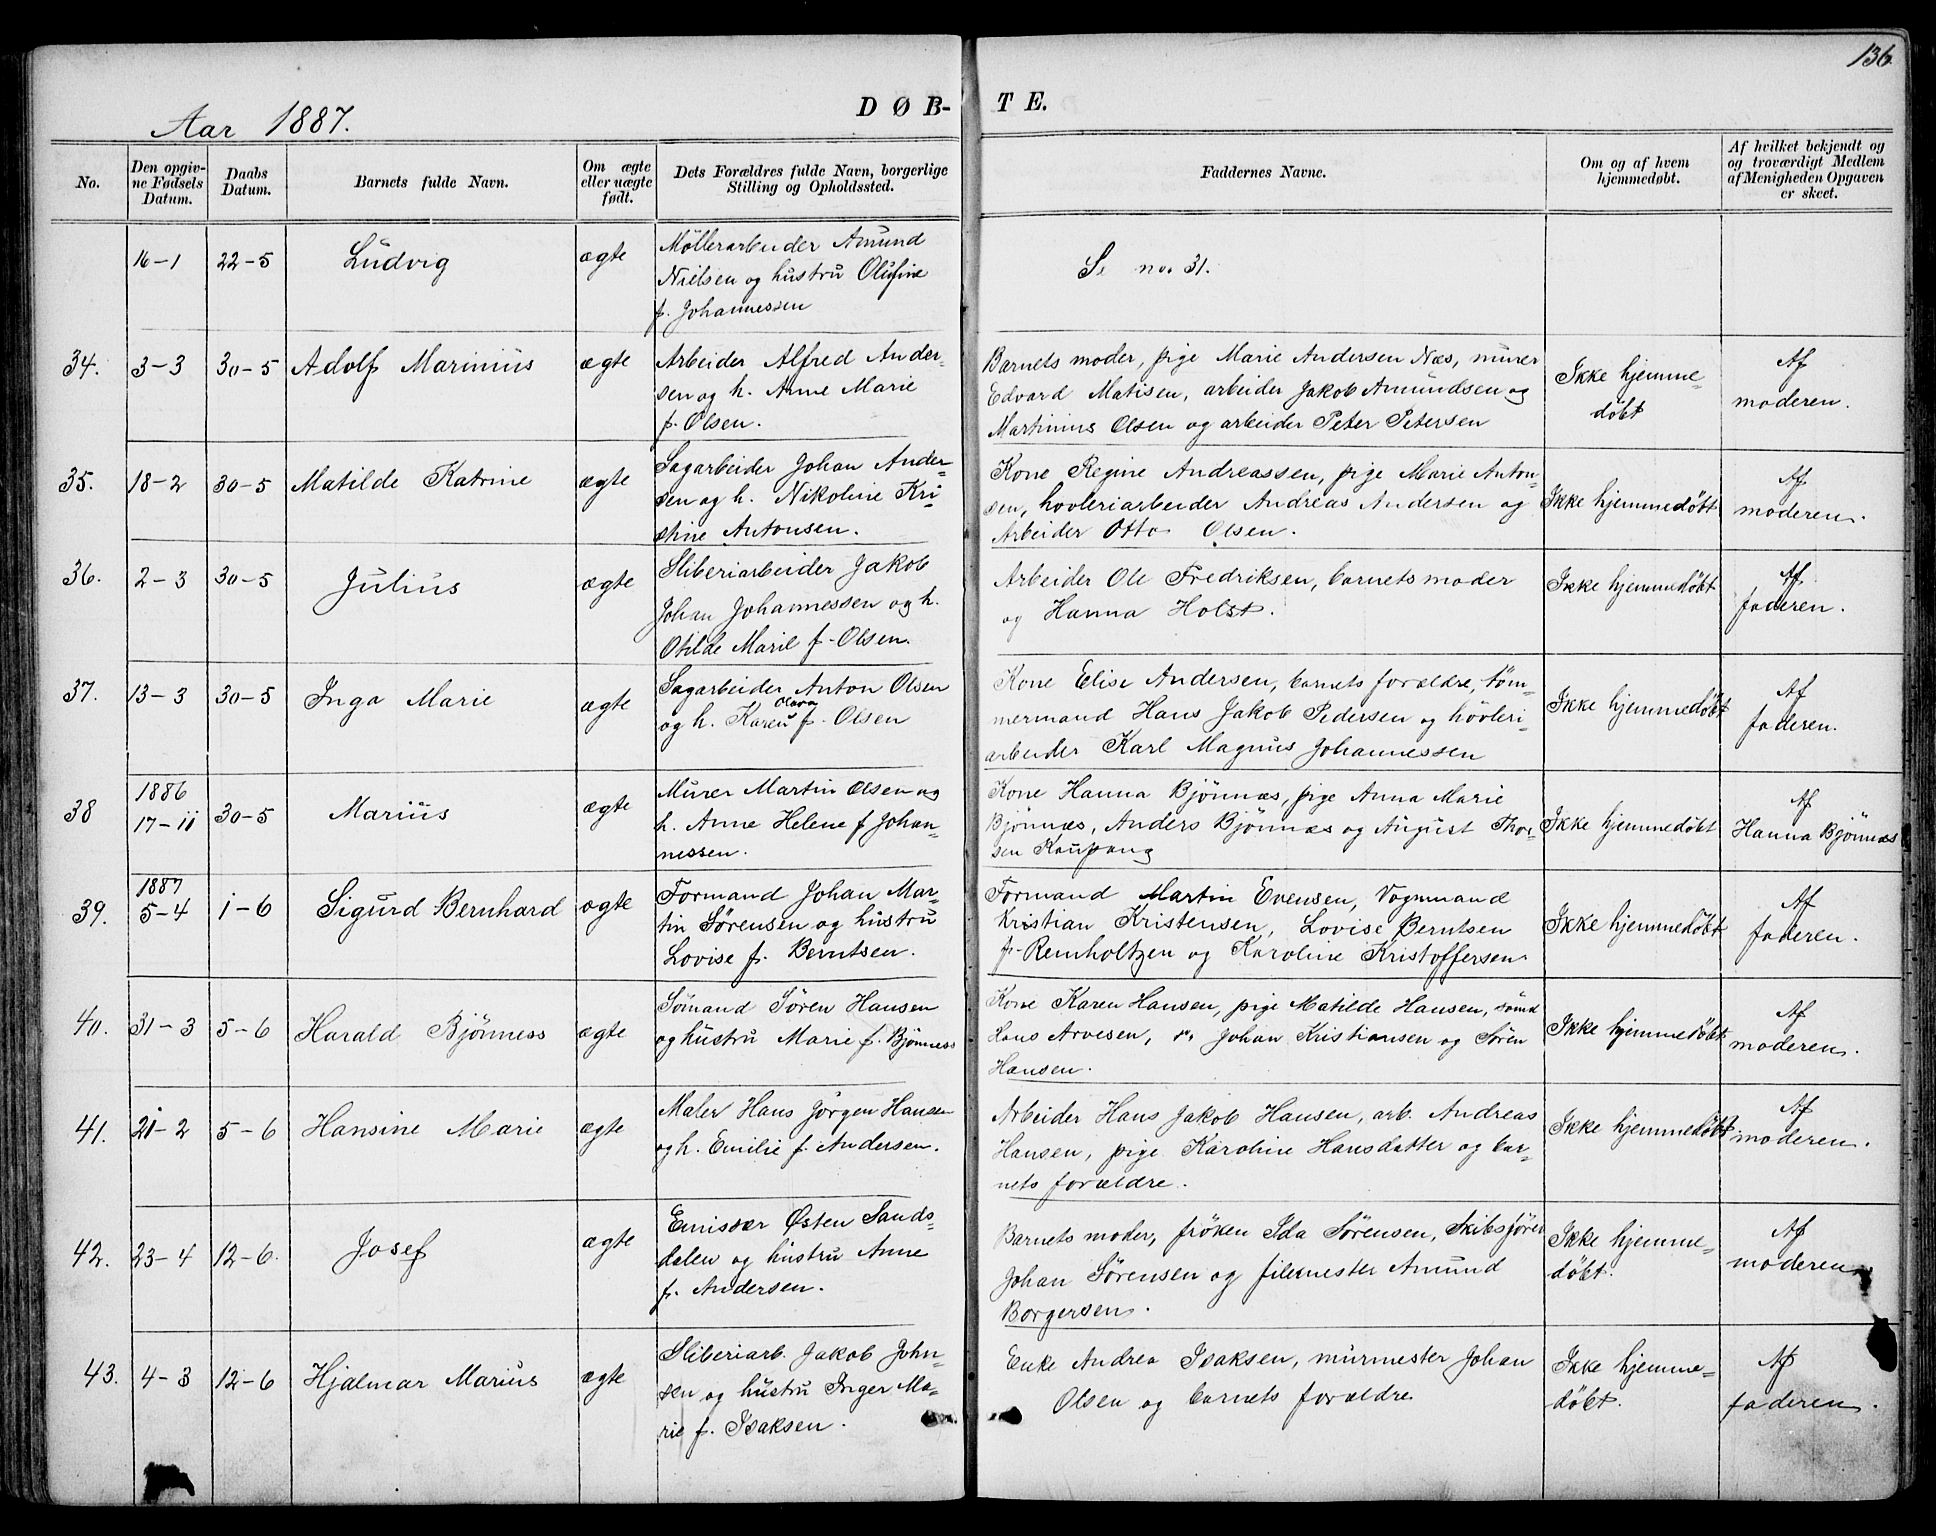 136
Aar 1887.
DØB-
TE.
No.
Den opgiv-
ne Fødsels
Datum.
Daabs
Datum.
Barnets fulde Navn.
Om ægte
eller uægte
født.
Dets Forældres fulde Navn, borgerlige
Stilling og Opholdssted.
Faddernes Navne.
Om og af hvem
hjemmedøbt.
Af hvilket bekjendt og
og troværdigt Medlem
af Menigheden Opgaven
er skeet.
16-1
22-5
Ludvig
ægte
Møllerarbeider Amund
Nielsen og hustru Olufine
f. Johannessen
Se no. 31.
34.
3-3
30-5
Adolf Marinius
ægte
Arbeider Alfred Ander-
sen og h. Anne Marie
f. Olsen.
Barnets moder, pige Marie Andersen Næs, murer
Edvard Matisen, arbeider Jakob Amundsen og
Martinius Olsen og arbeider Peter Petersen
Ikke hjemme-
døbt
Af
moderen.
35.
18-2
30-5
Matilde Katrine
ægte
Sagarbeider Johan Ander-
sen og h. Nikoline Kri-
stine Antonsen.
Kone Regine Andreassen, pige Marie Anton-
sen, hovleriarbeider Andreas Andersen og
Arbeider Otto Olsen.
Ikke hjemmedøbt
Af
moderen.
36.
2-3
30-5
Julius
ægte
Sliberiarbeider Jakob
Johan Johannessen og h.
Otilde Marie f. Olsen.
Arbeider Ole Fredriksen, barnets moder
og Hanna Holst.
Ikke hjemmedøbt
Af
faderen.
37.
13-3
30-5
Inga Marie
ægte
Sagarbeider Anton Olsen
Olava
og h. Karen f. Olsen
Kone Elise Andersen, barnets forældre, tøm-
mermand Hans Jakob Pedersen og høvleri-
arbeider Karl Magnus Johannessen
Ikke hjemmedøbt
Af
faderen.
38
1886
17-11
30-5
Marius
ægte
Murer Martin Olsen og
h. Anne Helene f Johan-
nessen.
Kone Hanna Bjønnæs, pige Anna Marie
Bjønnæs, Anders Bjønnæs og August Thor-
sen Kaupang
Ikke hjemmedøbt
Af
Hanna Bjønnæs
39.
1887
5-4
1-6
Sigurd Bernhard
ægte
Formand Johan Mar-
tin Sørensen og hustru
Lovise f. Berntsen.
Formand Martin Evensen, Vognmand
Kristian Kristensen, Lovise Berntsen
f. Reinholtzen og Karoline Kristoffersen
Ikke hjemmedøbt
Af
faderen.
40.
31-3
5-6
Harald Bjønness
ægte
Sømand Søren Hansen
og hustru Marie f. Bjønness
Kone Karen Hansen, pige Matilde Hansen, sømd
Hans Arvesen, " Johan Kristiansen og Søren
Hansen.
Ikke hjemmedøbt
Af
moderen.
41.
21-2
5-6
Hansine Marie
ægte
Maler Hans Jørgen Hansen
og h. Emilie f. Andersen.
Arbeider Hans Jakob Hansen, arb. Andreas
Hansen, pige Karoline Hansdatter og bar-
nets forældre.
Ikke hjemmedøbt
Af
moderen.
42.
23-4
12-6.
Josef
ægte
Emissær Østen Sands-
dalen og hustru Anne
f. Andersen.
Barnets moder, frøken Ida Sørensen, Skibsfører
Johan Sørensen og filemester Amund
Borgersen.
Ikke hjemme-
døbt.
Af
moderen
43.
4-3
12-6
Hjalmar Marius
ægte
Sliberiarb. Jakob John-
sen og hustru Inger Ma-
rie f. Isaksen.
Enke Andrea Isaksen, murmester Johan
Olsen og barnets forældre
Ikke hjemme-
døbt.
Af
faderen.